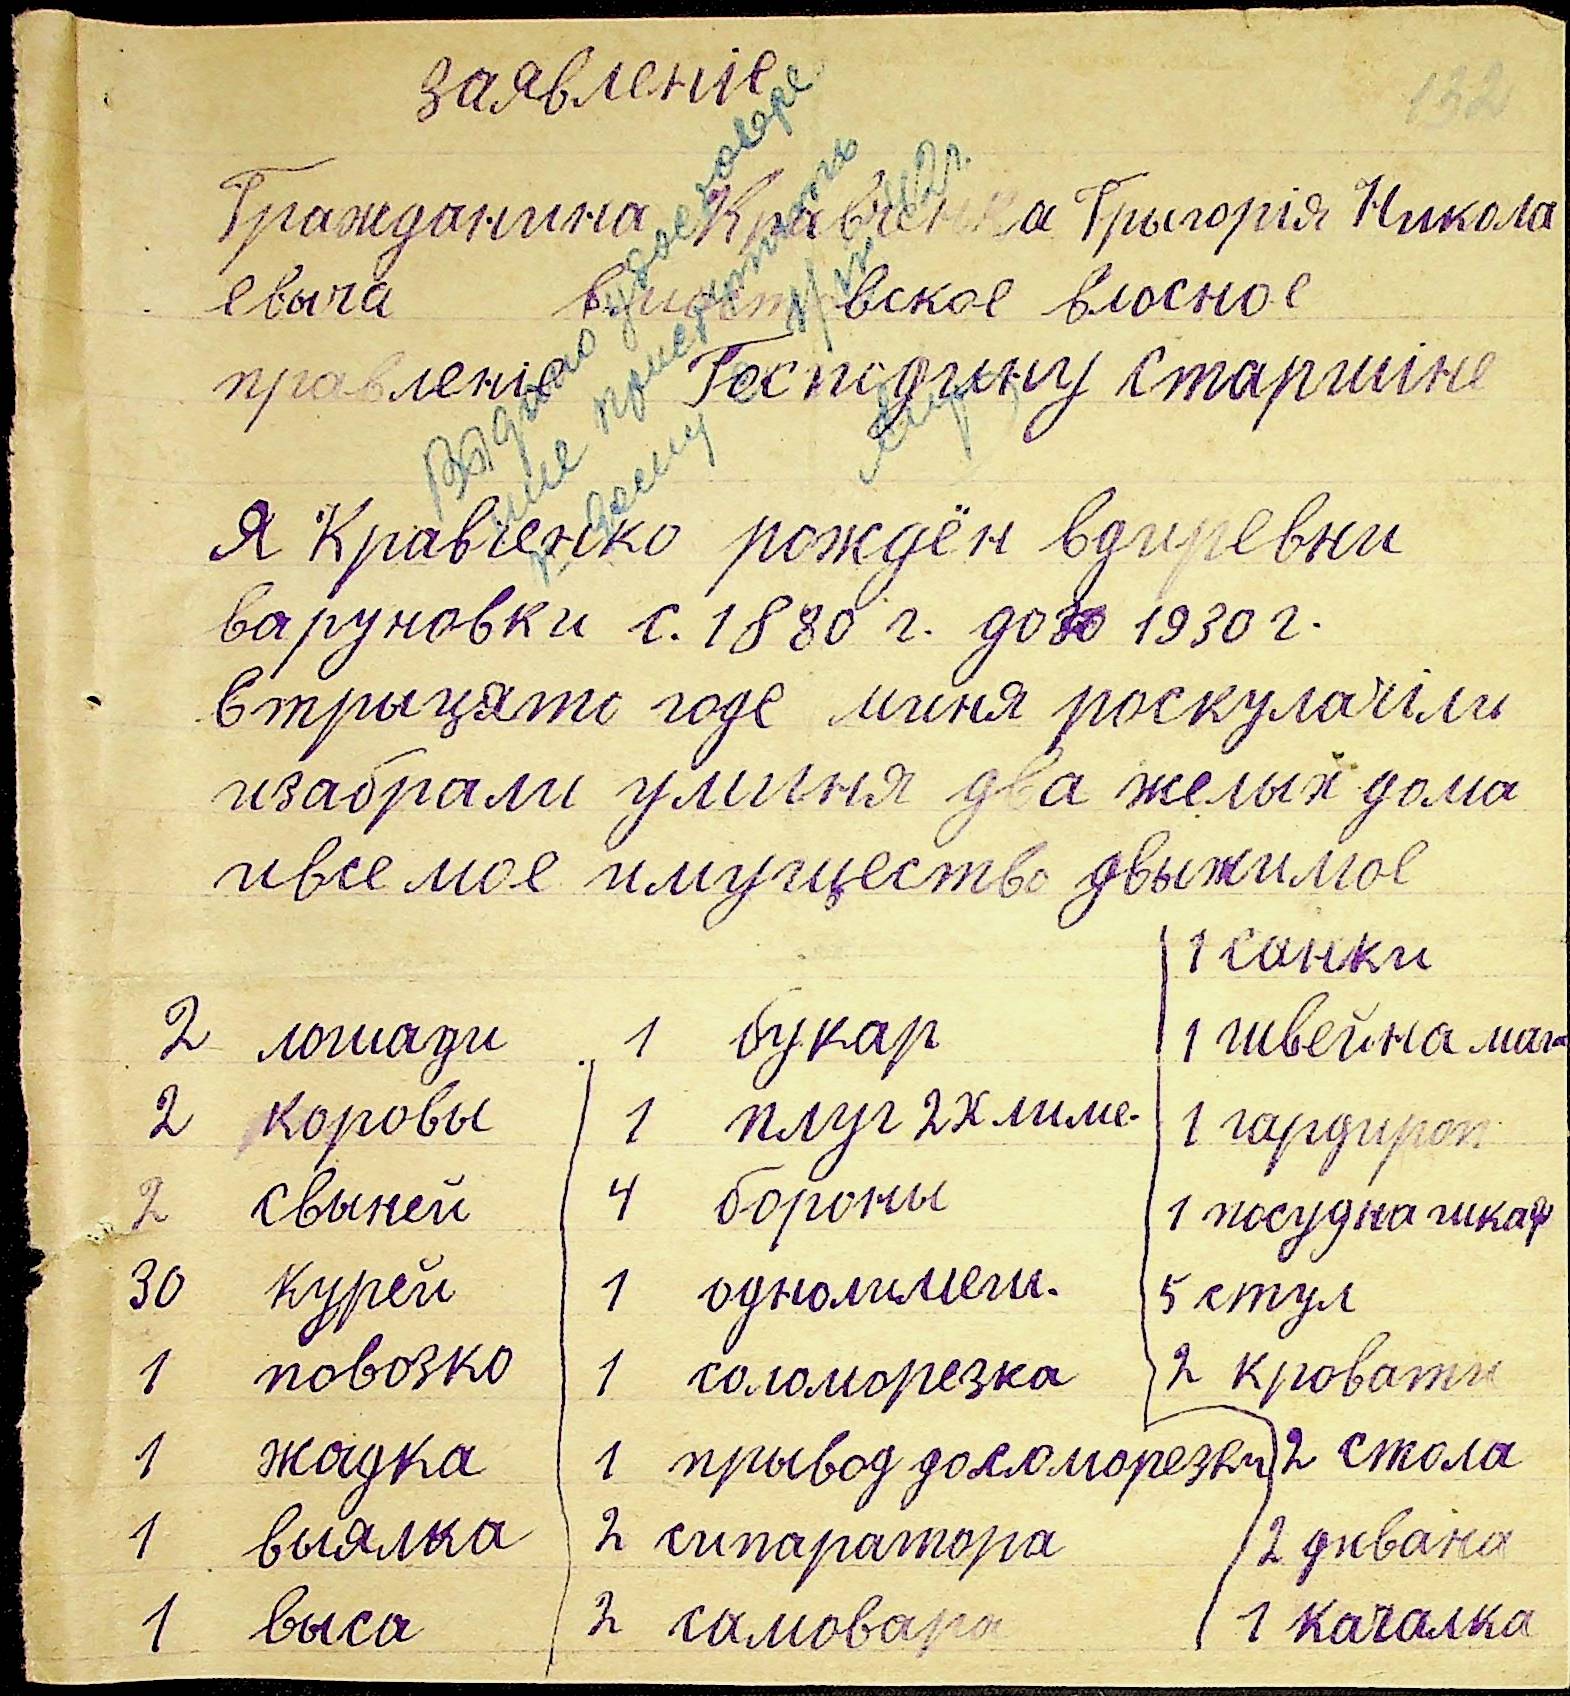 заявленіе
132
Гражданина Кравченка Грыгорія Никола
евыча вское влосное
правленіе Господину старшіне
Выдано удостовере
ние
42 г.
Я Кравченко рождён вдиревни
варуновки с. 1880 г. до 1930 г.
втрыцято годе миня роскулачіли
изабрали уминя два желых дома
ивсе мое имущество двыжимое
2 лошади
2 коровы
2 свыней
30 курей
1 повозко
1 жадка
1 выялка
1 выса
1 букар
1 плуг 2х лиме.
4 бороны
1 однолимеш.
1 соломорезка
1 прывод досломорезки
2 сипаратора
2 самовара
1 санки
1 швейна маш
1 гардироп
1 посудна шкаф
5 стул
2 кровати
2 стола
2 дивана
1 качалка